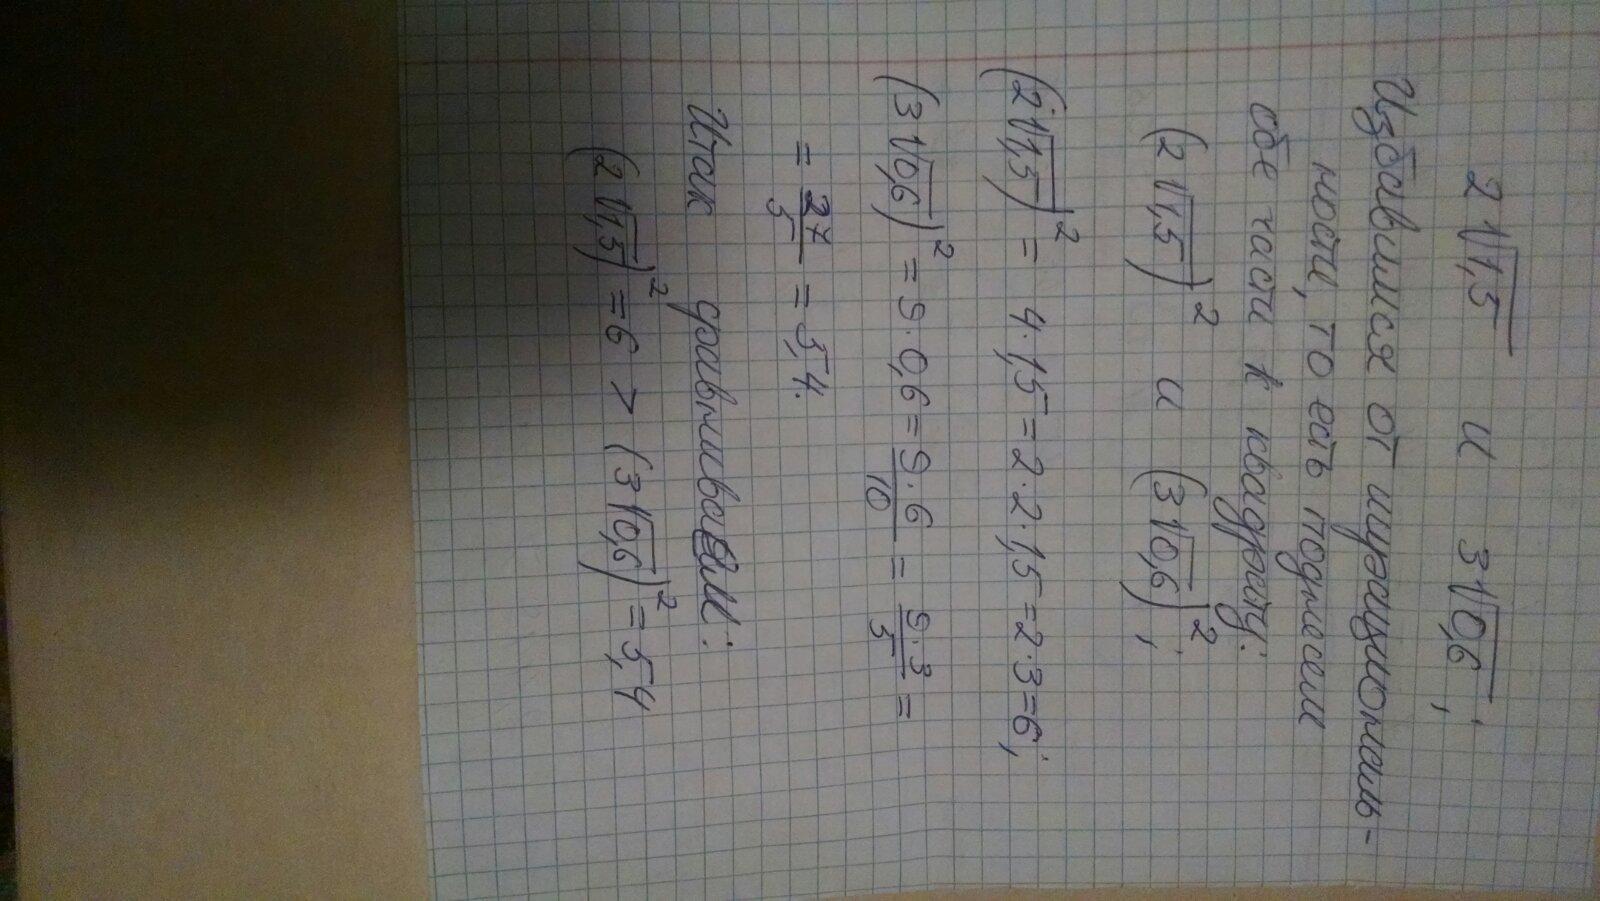 2√1,5 и 3√0,6;
Избавимся от иррациональ-
ности, то есть поднесем
обе части к квадрату:
(2√1,5)² и (3√0,6)²;
(2√1,5)² = 4·1,5=2·2·1,5=2·3=6;
(3√0,6)² = 9·0,6=9·6/10 = 9·3/5 =
= 27/5 = 5,4.
Итак сравниваем:
(2√1,5)²=6 > (3√0,6)²=5,4